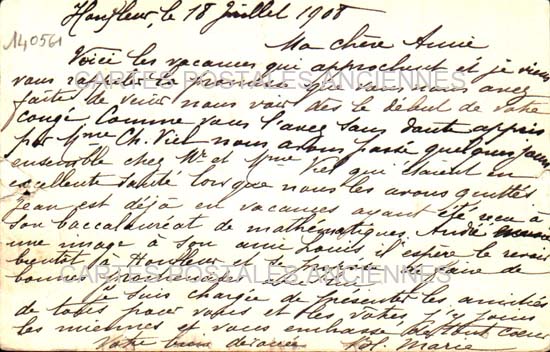 Honfleur, le 18 Juillet 1908
140561
Ma chère Annie
Voici les vacances qui approchent et je viens
vous rappeler la promesse que vous nous avez
faite de venir nous voir dès le début de votre
congé. Comme vous l'avez sans doute appris
par Mme Ch. Viel nous avons passé quelques jours
ensemble chez Mr et Mme Viel qui étaient en
excellente santé lorsque nous les avons quittés
Jean est déjà en vacances ayant été reçu à
son baccalauréat de mathématiques. André
une image à son ami Louis il espère le revoir
bientôt à Honfleur et se de
bonnes promenades
Je suis chargée de présenter les amitiés
de tous pour vous et les vôtres j'y joins
les miennes et vous embrasse de tout cœur
Votre bien dévouée Marie
CARTES POSTALES ANCIENNES
CARTES POSTALES ANCIENNES